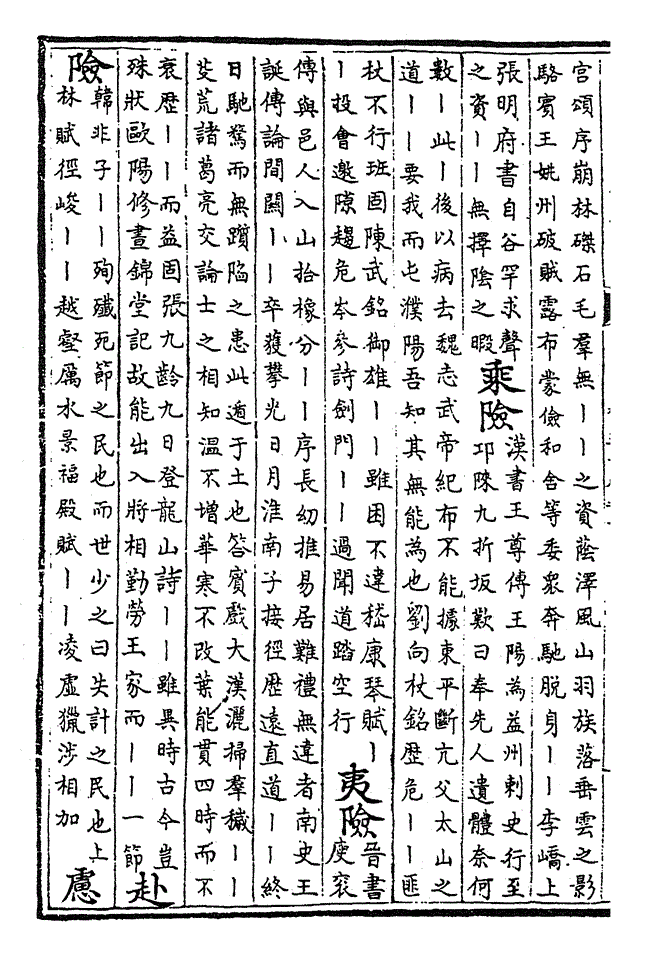 宮頌序崩林磔石毛羣無丨丨之資蔭澤風山羽族落垂雲之影
駱賓王姚州破賊露布蒙儉和舍等委衆奔馳脫身丨丨李嶠上
張明府書自谷罕求聲
之資丨丨無擇陰之暇
乘險
漢書王尊傳王陽為益州刺史行至
卭陎九折坂歎曰奉先人遺體奈何
數丨此丨後以病去魏志武帝紀布不能據東平斷亢父太山之
道丨丨要我而屯濮陽吾知其無能為也劉向杖銘歷危丨丨匪
杖不行班固陳武銘御雄丨丨雖困不違嵇康琴賦丨
丨投會邀隙趨危岑參詩劍門丨丨過聞道踏空行
夷險
晉書
庾袞
傳與邑人入山拾橡分丨丨序長幼推易居難禮無違者南史王
誕傳論間關丨丨卒獲攀光日月淮南子接徑歷遠直道丨丨終
日馳騖而無躓陷之患此遁于土也答賓戲大漢灑掃羣穢丨丨
芟荒諸葛亮交論士之相知溫不增華寒不改葉能貫四時而不
衰歷丨丨而益固張九齡九日登龍山詩丨丨雖異時古今豈
殊狀歐陽修晝錦堂記故能出入將相勤勞王家而丨丨一節
赴
險
韓非子丨丨殉殲死節之民也而世少之曰失計之民也上
林賦徑峻丨丨越壑厲水景福殿賦丨丨凌虛獵涉相加
慮